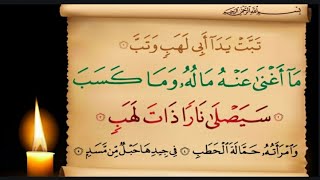 بِسْمِ اللَّهِ الرَّحْمَٰنِ الرَّحِيمِ
تَبَّتْ يَدَا أَبِي لَهَبٍ وَتَبَّ
مَا أَغْنَىٰ عَنْهُ مَالُهُ وَمَا كَسَبَ
سَيَصْلَىٰ نَارًا ذَاتَ لَهَبٍ
وَامْرَأَتُهُ حَمَّالَةَ الْحَطَبِ فِي جِيدِهَا حَبْلٌ مِّن مَّسَدٍ